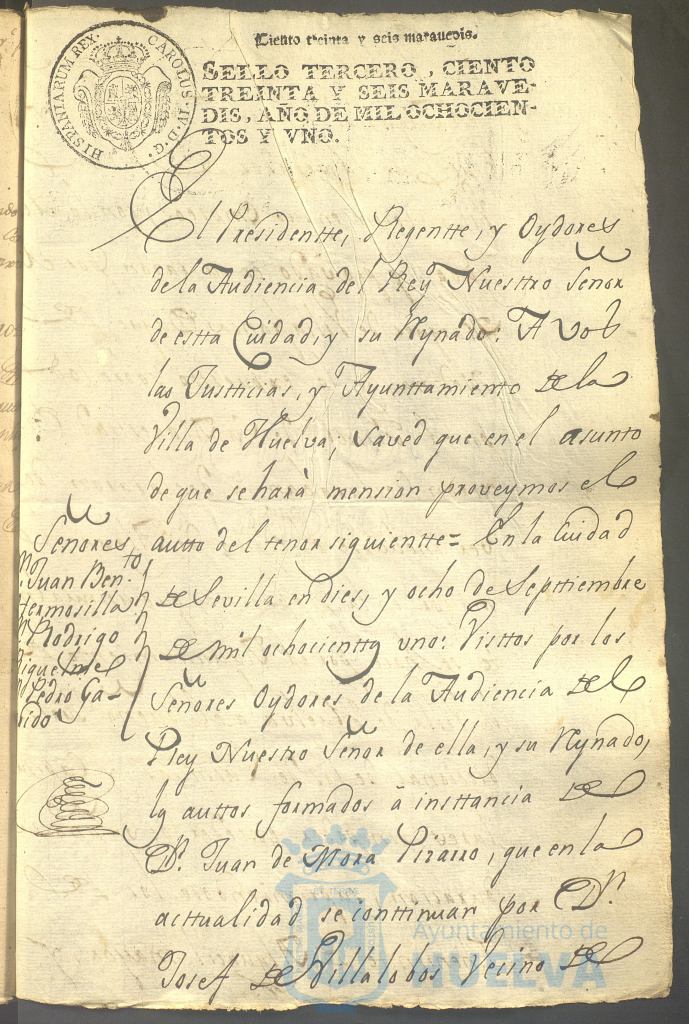 HISPANIARUM REX. CAROLUS. IV. D. G.
Ciento treinta y seis marauedis.
SELLO TERCERO, CIENTO
TREINTA Y SEIS MARAVE-
DIS, AÑO DE MIL OCHOCIEN-
TOS Y VNO.
El Presidentte, Regentte, y Oydores
de la Audiencia del Rey Nuestro Señor
de estta Cuidad, y su Rynado: A vos
las Justticias, y Ayunttamiento de la
Villa de Huelva; saved que en el asunto
de que se hará mension proveymos el
autto del tenor siguientte = En la Cuidad
de Sevilla en dies, y ocho de Septtiembre
de mil ochocienttos y uno: Visttos por los
Señores Oydores de la Audiencia del
Rey Nuestro Señor de ella, y su Rynado,
los auttos formados á insttancia de
Dn. Juan de Mora Pizarro, que en la
acttualidad se conttinuan por Dn.
Josef de Villalobos Vecino de
Señores
Juan Bento
Hermosilla
Rodrigo
Riquelme
Pedro Ga-
bido
Ayuntamiento de
HUELVA